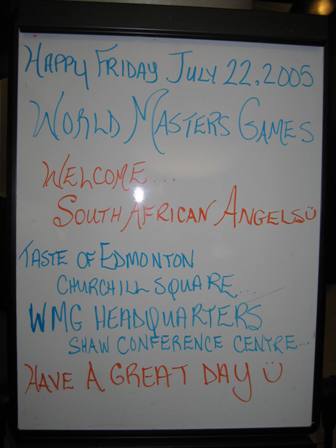 HAPPY FRIDAY JULY 22, 2005
WORLD MASTERS GAMES
WELCOME...
SOUTH AFRICAN ANGELS
TASTE OF EDMONTON
CHURCHILL SQUARE...
WMG HEADQUARTERS
SHAW CONFERENCE CENTRE...
HAVE A GREAT DAY